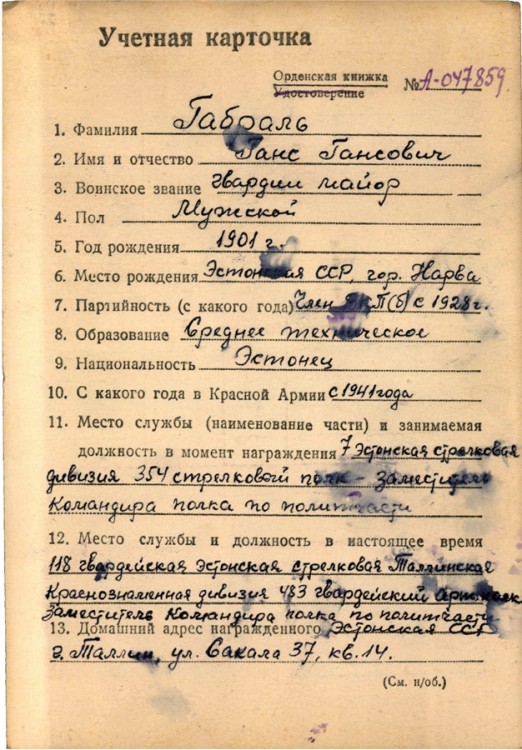 Учетная карточка
Орденская книжка
Удостоверение
№ А-047859.
1. Фамилия Габраль
2. Имя и отчество Ганс Гансович
3. Воинское звание гвардии майор
4. Пол Мужской
5. Год рождения 1901 г.
6. Место рождения Эстонская ССР, гор. Нарва
7. Партийность (с какого года) Член ВКП(б) с 1928г.
8. Образование Среднее техническое
9. Национальность Эстонец
10. С какого года в Красной Армии с 1941 года
11. Место службы (наименование части) и занимаемая
должность в момент награждения 7 Эстонская стрелковая
дивизия 354 стрелковый полк - Заместитель
Командира полка по политчасти
12. Место службы и должность в настоящее время
118 гвардейская Эстонская стрелковая Таллинская
Краснознаменная дивизия 483 гвардейский артполк
Заместитель Командира полка по политчасти
13. Домашний адрес награжденного Эстонская ССР
г. Таллин, ул. Сакала 37, кв. 14.
(См. н/об.)